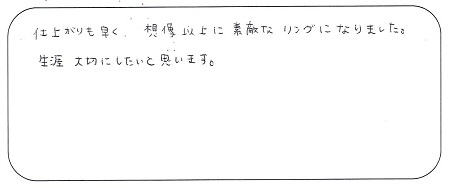 仕上がりも早く、想像以上に素敵なリングになりました。
生涯大切にしたいと思います。